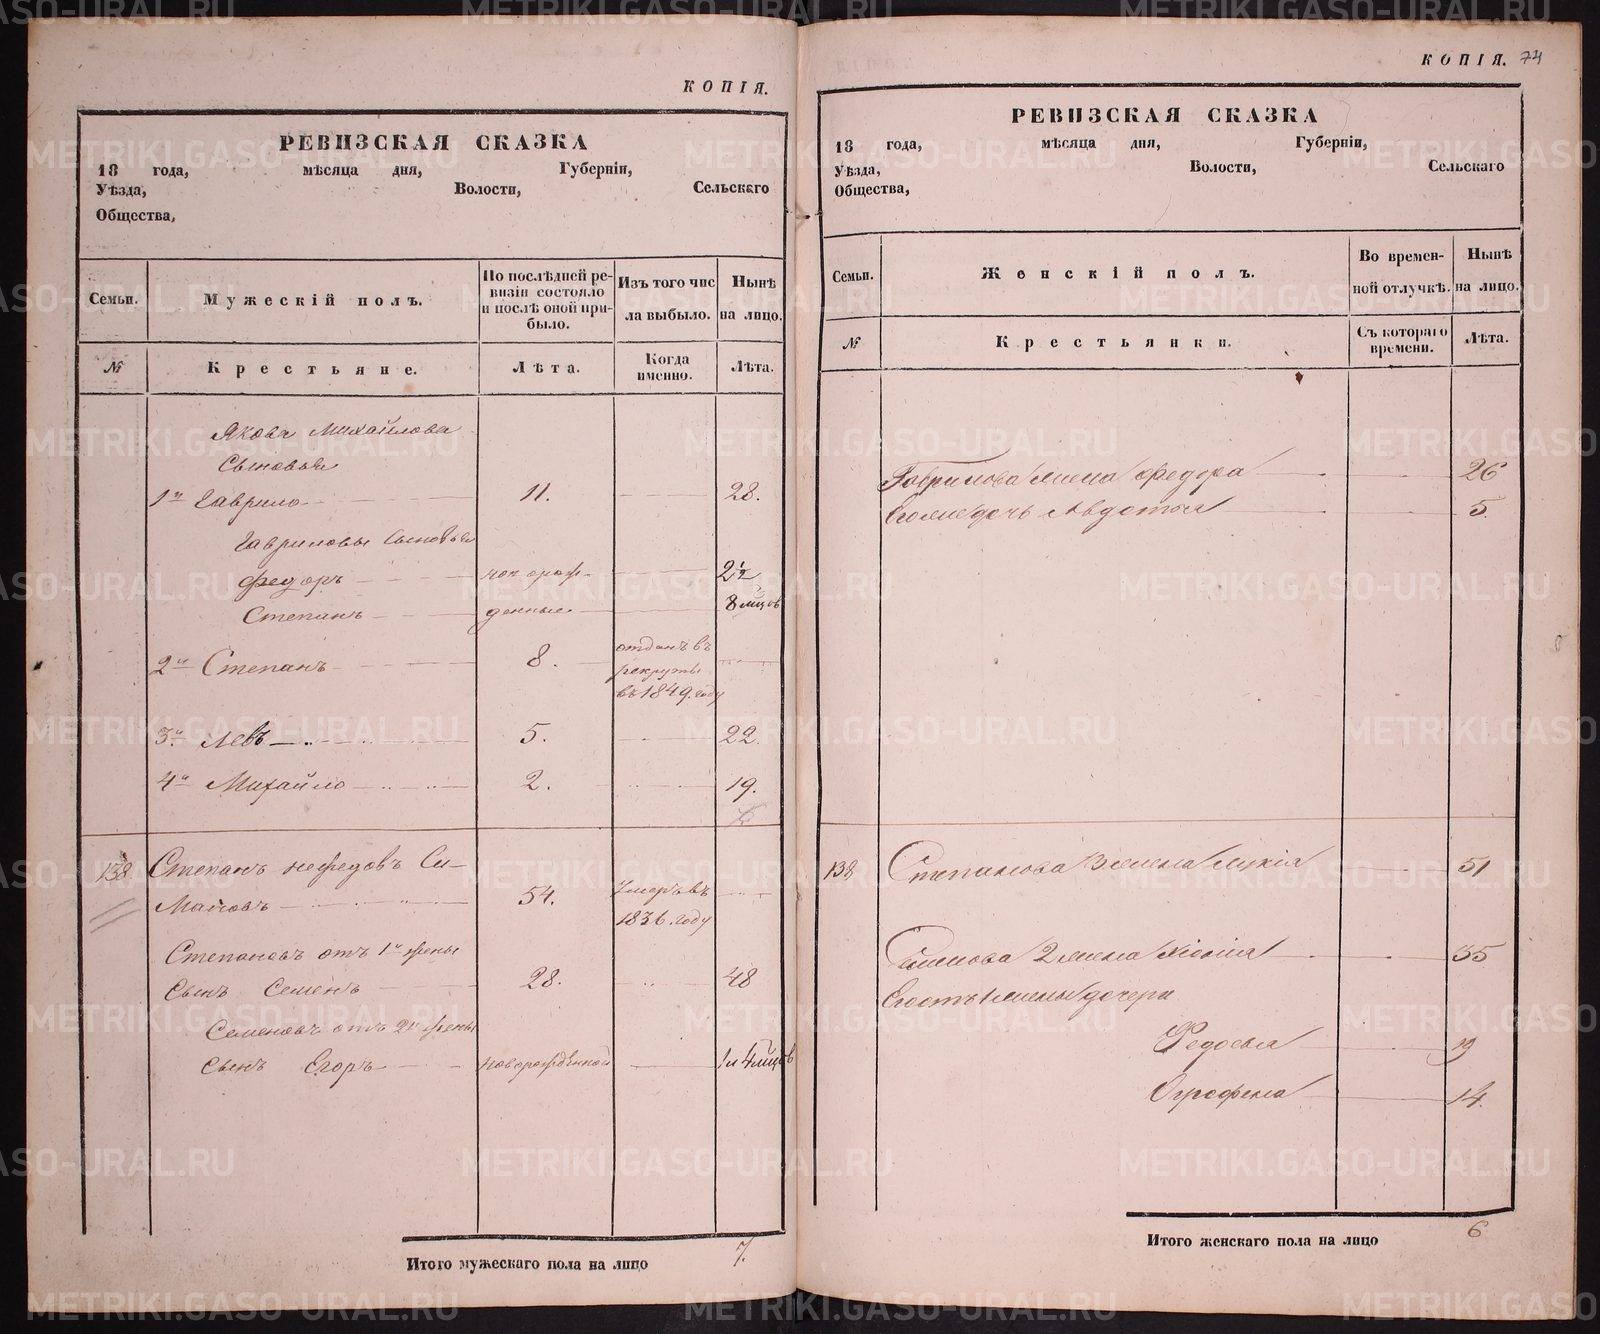 КОПІЯ.
РЕВИЗСКАЯ СКАЗКА
18 года, мѣсяца дня, Губерніи,
Уѣзда, Волости, Сельскаго
Общества,
Семьи. Мужескій полъ. По послѣдней ревизіи состояло и послѣ оной прибыло. Изъ того числа выбыло. Нынѣ на лицо.
№ Крестьяне. Лѣта. Когда именно. Лѣта.
Якова Михайлова
Сыновья
1й Гаврило 11. 28.
Гавриловы Сыновья
Федоръ новорож- 2
Степанъ денные 8 мѣцов
2й Степанъ 8. отданъ въ рекруты въ 1849. году
3й Левъ 5. 22.
4й Михайло 2. 19.
138 Степанъ Нефедовъ Си-
Маковъ 54. Умеръ въ 1836. году
Степановъ отъ 1й жены
Сынъ Семенъ 28. 48
Семеновъ отъ 2й жены
Сынъ Егоръ новорожденной 1 и 4 мѣцов
Итого мужескаго пола на лицо 7.
КОПІЯ. 74
РЕВИЗСКАЯ СКАЗКА
18 года, мѣсяца дня, Губерніи,
Уѣзда, Волости, Сельскаго
Общества,
Семьи. Женскій полъ. Во временной отлучкѣ. Нынѣ на лицо.
№ Крестьянки. Съ котораго времени. Лѣта.
Гаврилова жена Федора 26
Его же дочь Авдотья 5.
138 Степанова 3 жена Лукія 51
Семенова 2 жена Хіонія 35
Его отъ 1 жены дочери
Федосья 19
Огрофена 14.
Итого женскаго пола на лицо 6
METRIKI.GASO-URAL.RU